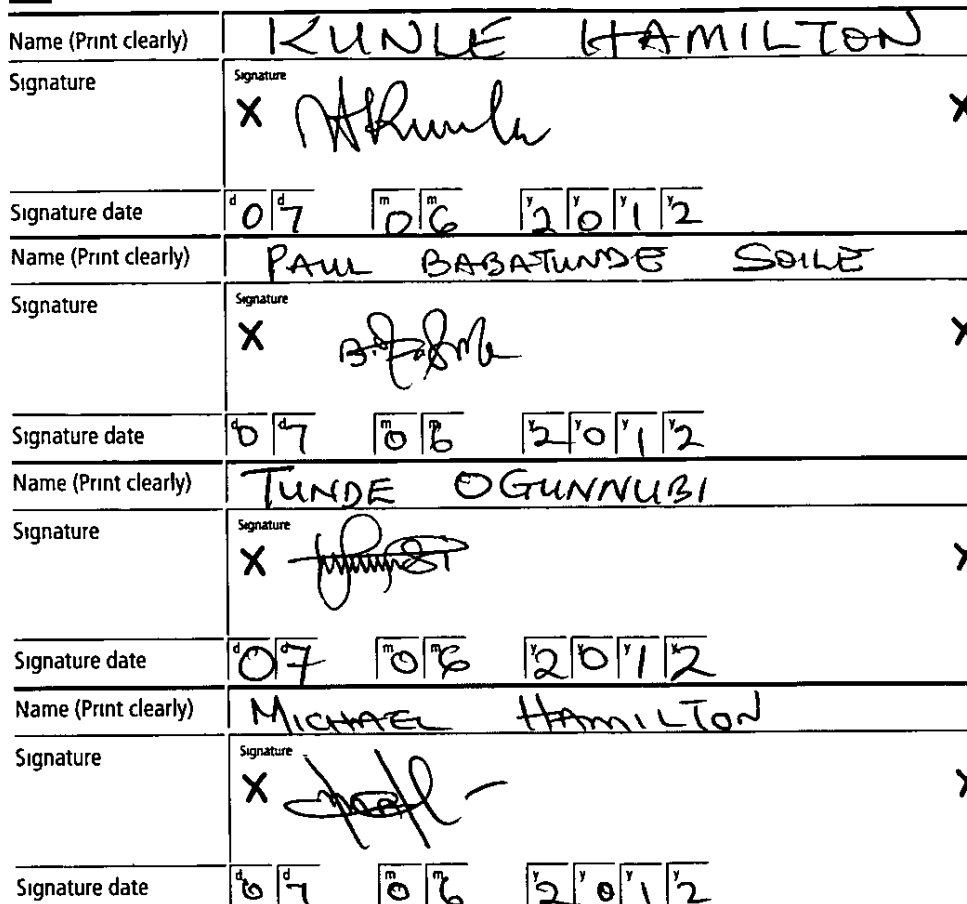 Name (Print clearly) KUNLE HAMILTON
Signature Signature
X X
Signature date d 0 d 7 m 0 m 6 y 2 y 0 y 1 y 2
Name (Print clearly) PAUL BABATUNDE SOILE
Signature Signature
X X
Signature date d 0 d 7 m 0 m 6 y 2 y 0 y 1 y 2
Name (Print clearly) TUNDE OGUNNUBI
Signature Signature
X X
Signature date d 0 d 7 m 0 m 6 y 2 y 0 y 1 y 2
Name (Print clearly) MICHAEL HAMILTON
Signature Signature
X X
Signature date d 0 d 7 m 0 m 6 y 2 y 0 y 1 y 2